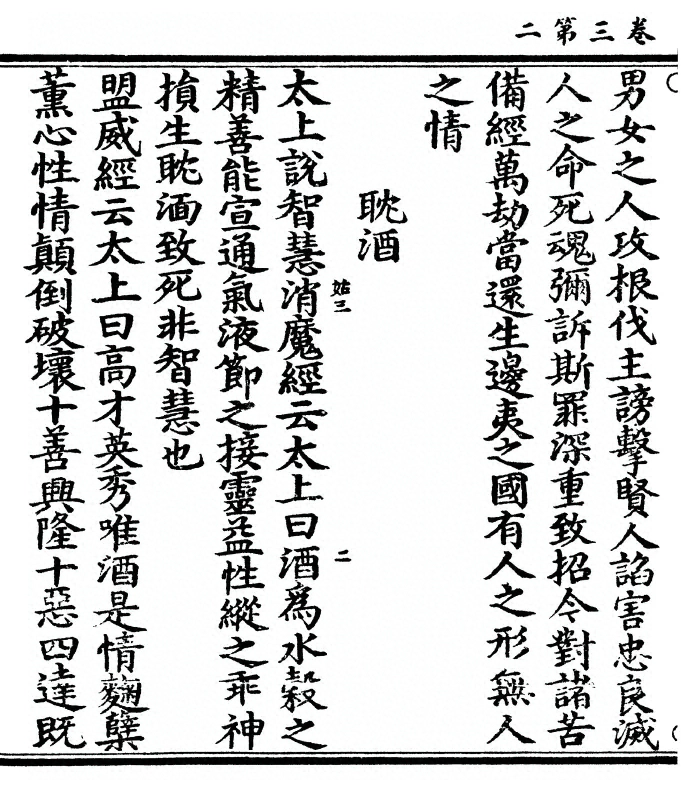 卷三第二
男女之人攻根伐主謗擊賢人諂害忠良滅
人之命死魂彌訴斯罪深重致招今對諸苦
備經萬劫當還生邊夷之國有人之形無人
之情
耽酒
太上說智慧消魔經云太上曰酒為水穀之
姑三
二
精善能宣通氣液節之接靈益性縱之乖神
損生耽湎致死非智慧也
盟威經云太上曰高才英秀唯酒是情麴櫱
薰心性情顛倒破壞十善興隆十惡四達既